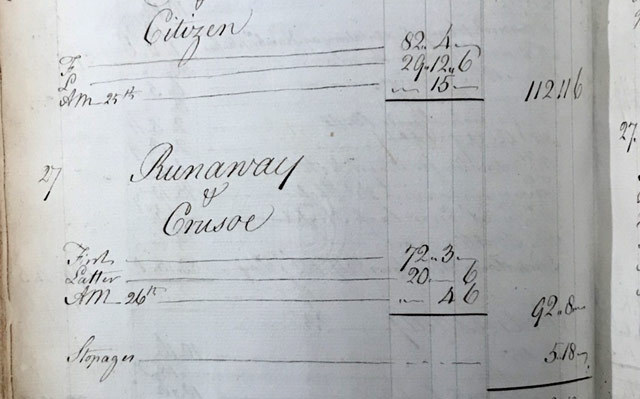 Citizen
F 82 " 4 "
L 29 " 12 " 6
AM 25th " 15 " 112 " 11 " 6
27 Runaway
&
Crusoe
First 72 " 3 "
Latter 20 " " 6
AM 26th " 4 6 92 " 8 "
Stopages 5 " 18 "
27.